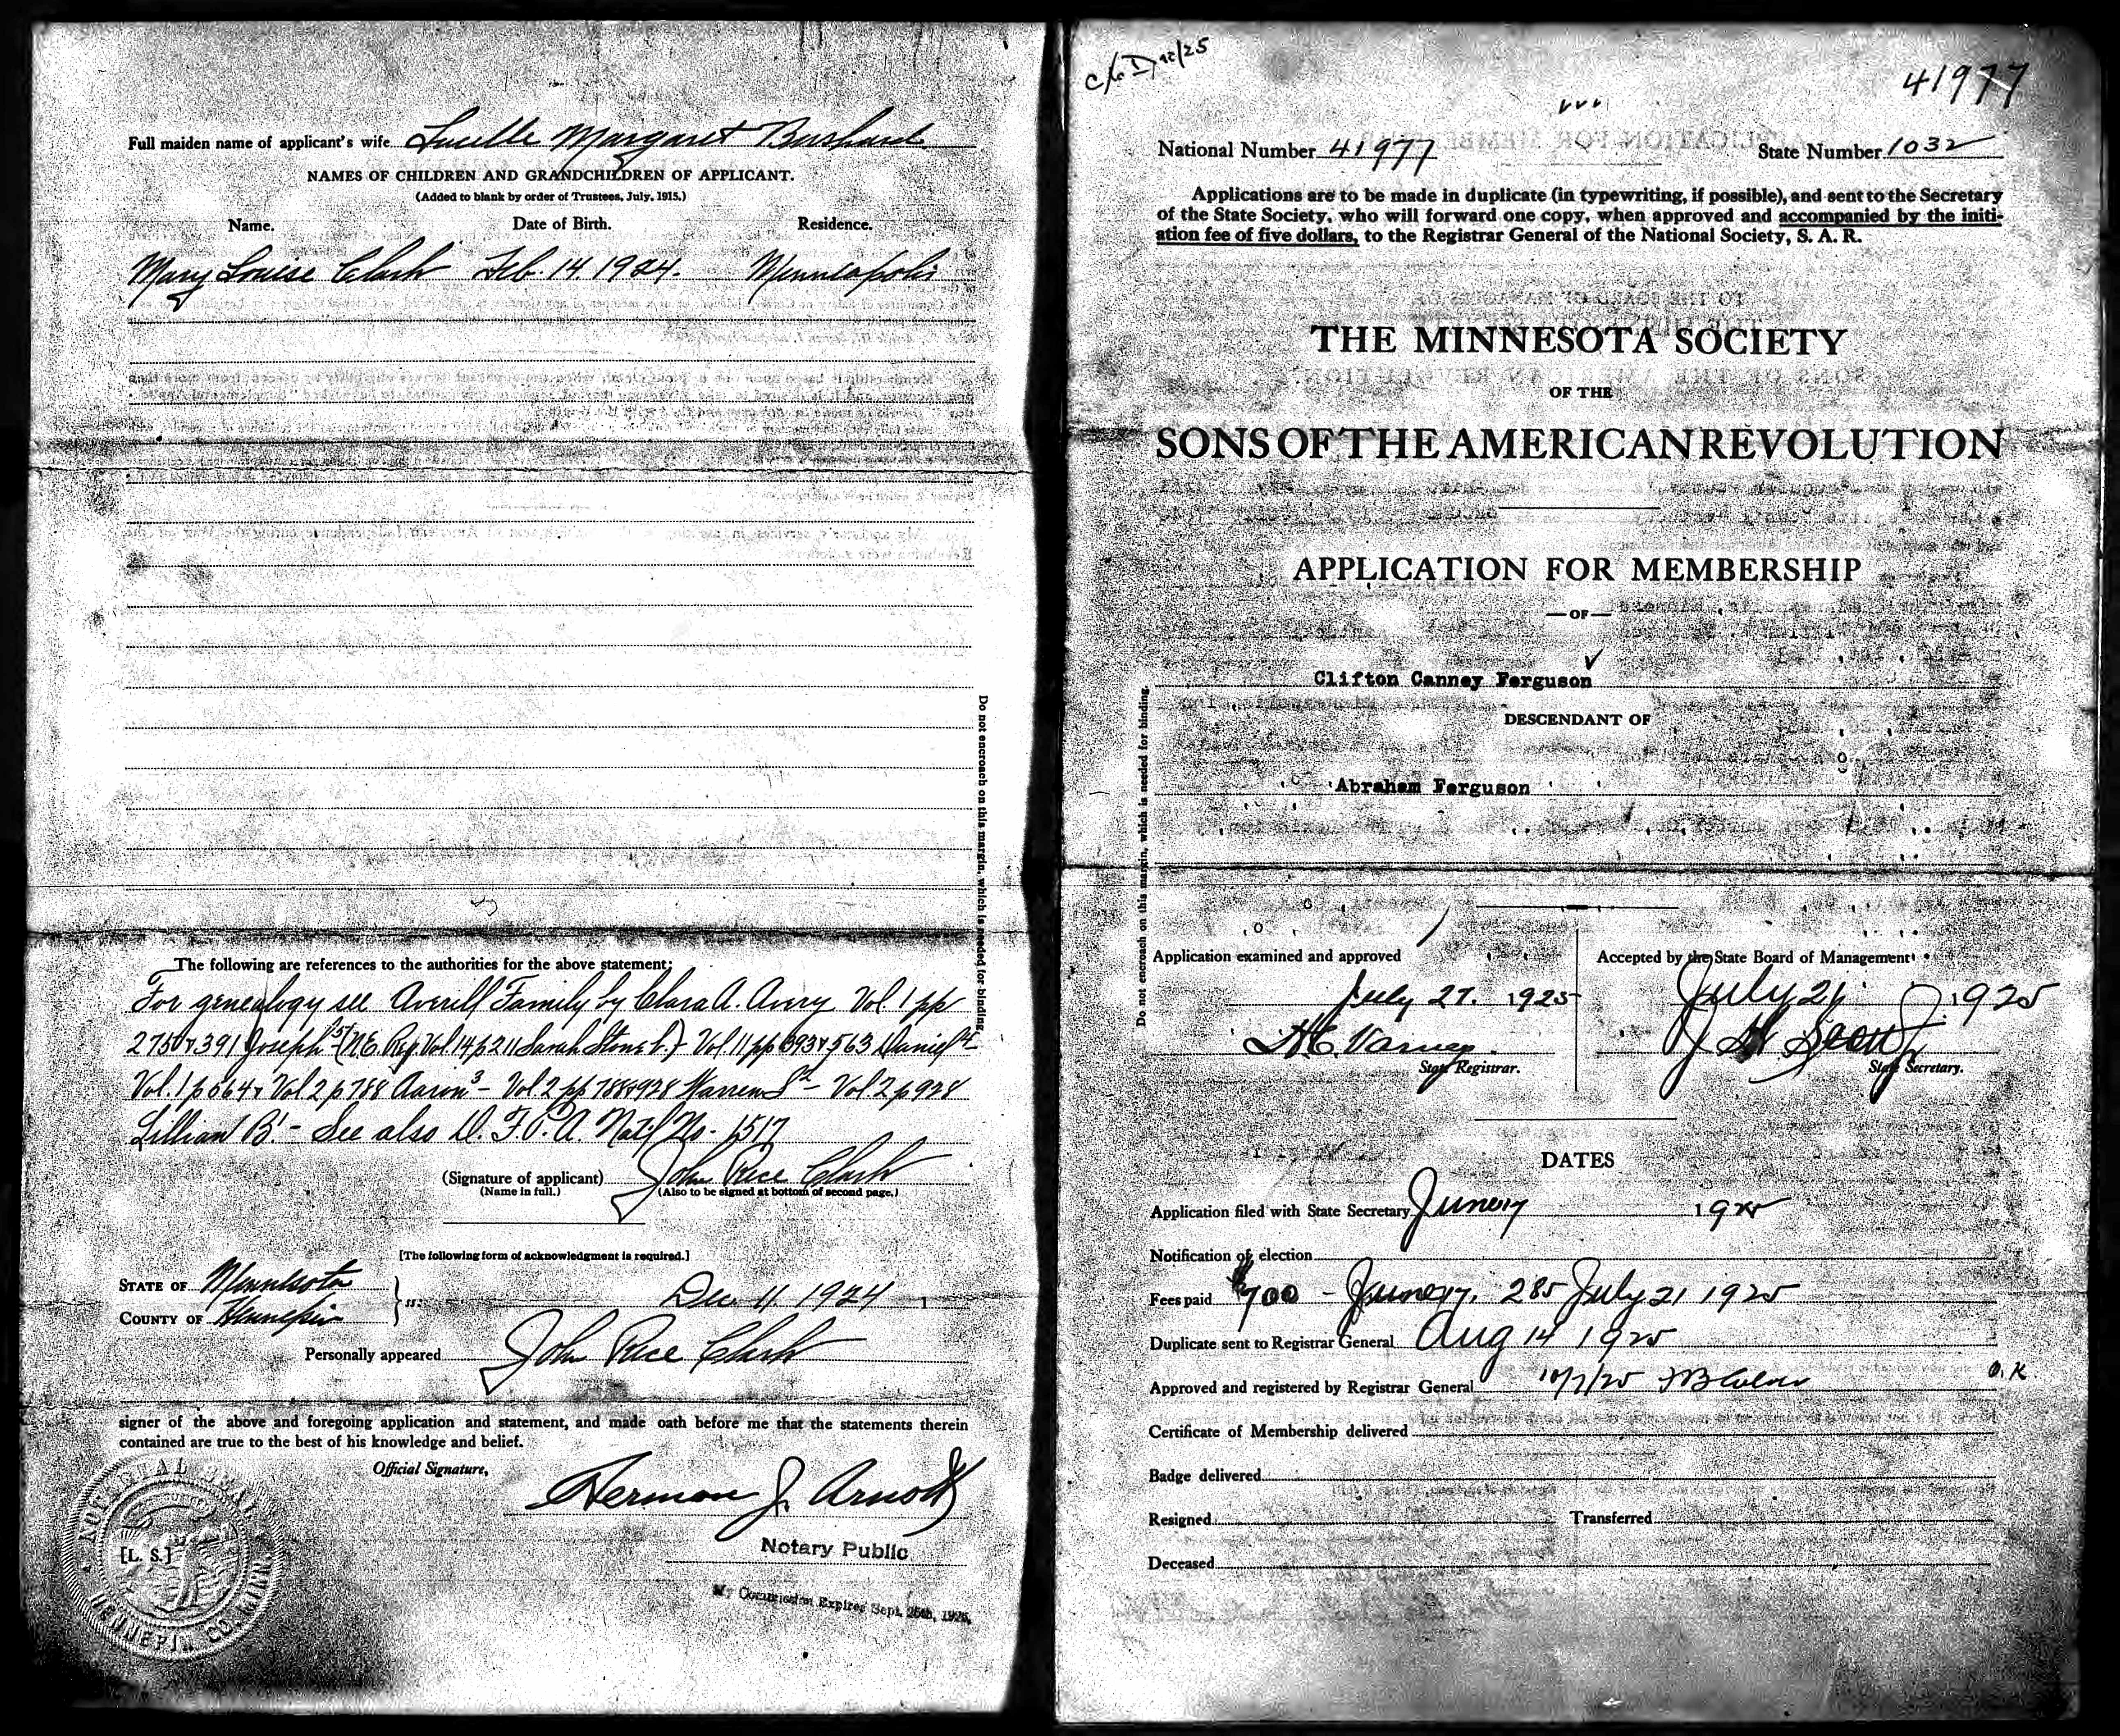 Full maiden name of applicant's wife Lucille Margaret
NAMES OF CHILDREN AND GRANDCHILDREN OF APPLICANT.
(Added to blank by order of Trustees, July, 1915.)
Name. Date of Birth. Residence.
Mary Louise Clark Feb. 14. 1924. Minneapolis
Do not encroach on this margin, which is needed for binding.
The following are references to the authorities for the above statement:
For genealogy see Averill Family by Clara A. Avery Vol. 1 pp
275 & 391 Joseph 5 (N.E. Reg Vol 14 p 211 Sarah Stone b.) - Vol 11 pp 393 & 563 Daniel 4 -
Vol. 1 p 564 & Vol 2 p 788 Aaron 3 - Vol. 2 pp 788 & 928 Warren S 2 - Vol. 2 p 928
Lillian B. 1 - See also D. F. P. A. Nat'l No. 1517
(Signature of applicant) John Rice Clark
(Name in full.) (Also to be signed at bottom of second page.)
[The following form of acknowledgment is required.]
STATE OF Minnesota
COUNTY OF Hennepin } ss: Dec. 11, 1924 1
Personally appeared John Rice Clark
signer of the above and foregoing application and statement, and made oath before me that the statements therein
contained are true to the best of his knowledge and belief.
Official Signature,
Herman J. Arnott
Notary Public
My Commission Expires Sept. 26th, 1925.
NOTARIAL SEAL
[L. S.]
HENNEPIN CO. MINN.
c/o Dec/25
41977
National Number 41977 State Number 1032
Applications are to be made in duplicate (in typewriting, if possible), and sent to the Secretary
of the State Society, who will forward one copy, when approved and accompanied by the initi-
ation fee of five dollars, to the Registrar General of the National Society, S. A. R.
THE MINNESOTA SOCIETY
OF THE
SONS OF THE AMERICAN REVOLUTION
APPLICATION FOR MEMBERSHIP
—OF—
Clifton Canney Ferguson
DESCENDANT OF
Abraham Ferguson
Do not encroach on this margin, which is needed for binding.
Application examined and approved
July 27. 1925
H.C. Varney
State Registrar.
Accepted by the State Board of Management
July 21 1925
State Secretary.
DATES
Application filed with State Secretary June 17 1925
Notification of election
Fees paid $700 - June 17, 285 July 21 1925
Duplicate sent to Registrar General Aug 14 1925
Approved and registered by Registrar General 10/7/25 O.K.
Certificate of Membership delivered
Badge delivered
Resigned Transferred
Deceased